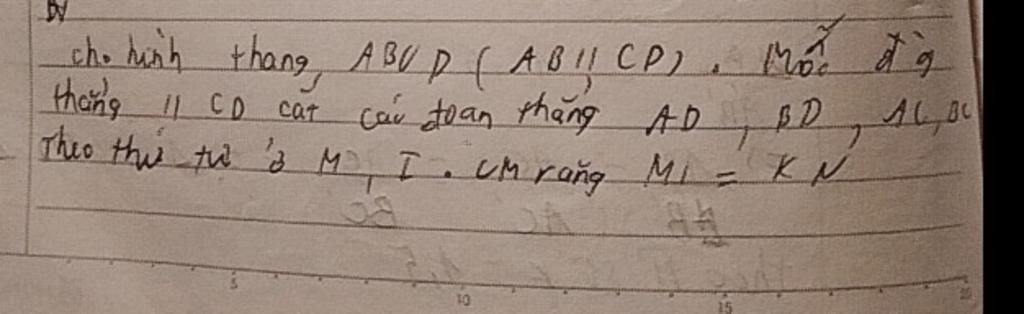 cho hình thang ABCD ( AB // CD ) . Một đ'g
thẳng // CD cắt các đoạn thẳng AD , BD , AC, BC
Theo thứ tự ở M , I . CM rằng MI = KN
5 10 15 20